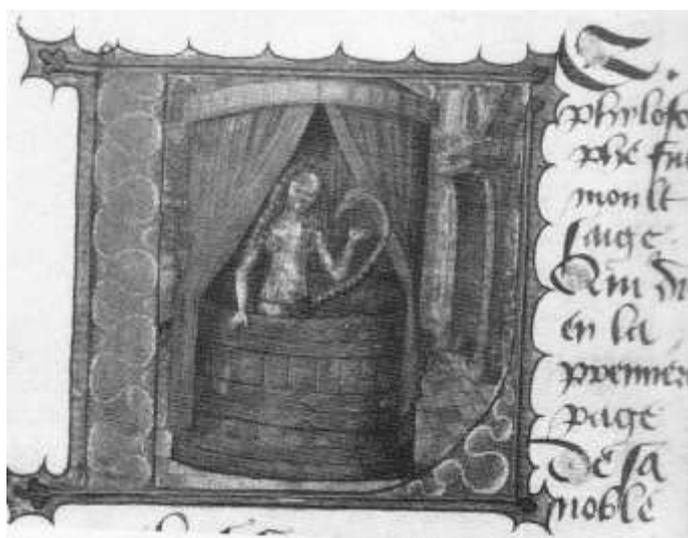 LE
phyloso
phe fu
moult
saige
Qui di
en la
premier
page
De sa
noble